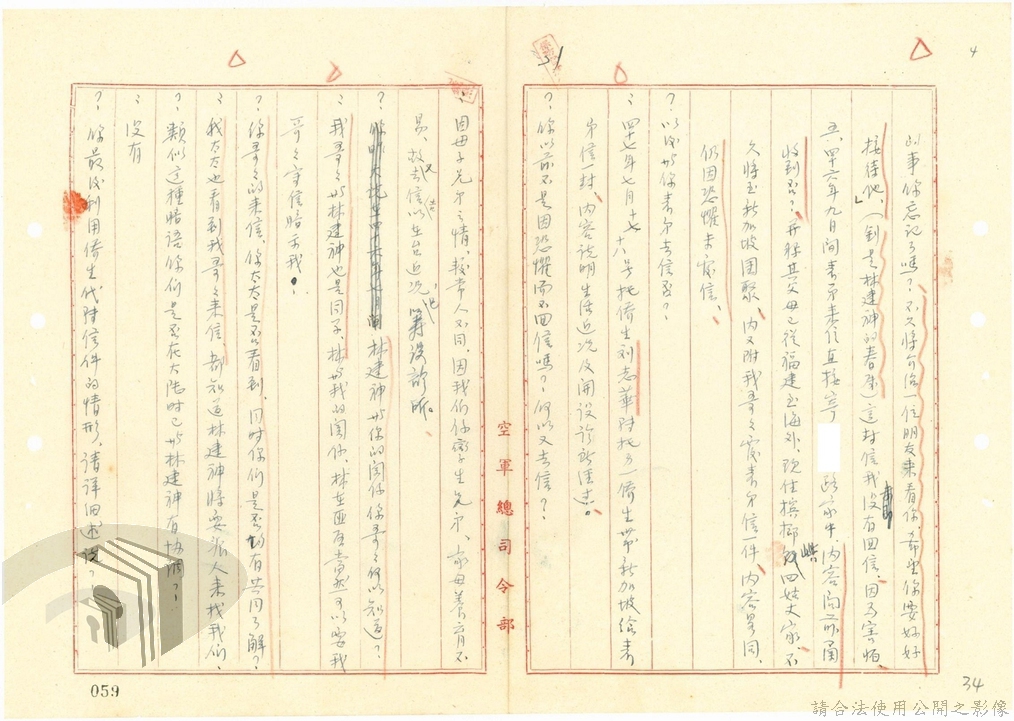 的事你忘記了嗎？不久將介紹一位朋友來看你、希望你要好好
接待他」、(倒是林建神的春聲)這封信我沒有回信、因為害怕、
五、四十六年九月間表弟來信直接寄 路家中、內容問前函
收到否？、并稱其父母已從福建至海外、現住檳榔嶼四姑丈家、不
久將至新加坡團聚、內又附我哥哥覆表弟信一件、內容畧同、
仍因恐懼未覆信、
？、以後你與表弟去信否？
：四十七年七月十七、十八号托僑生刘志華附托另一僑生帶新加坡給表
弟信一封、內容說明生活近況及開設診所經過。
？、你以前不是因恐懼而不回信嗎？何以又去信？、
：因母子兄弟之情、較常人不同、因我們係孿生兄弟、家母養育不
易、故又去信告以生台近況、籌設診所。
？、林建神與你的関係你哥哥何以知道？、
：我哥哥與林建神也是同學、林與我的関係、林在匪區當然可以要我
哥哥寫信暗示我。
？、你哥哥的來信、你太太是否看到、同時你們是否均有共同了解？
：我太太也看到我哥哥來信、都知道林建神將要派人來找我們、
？、類似這種暗語你們是否在大陸時已與林建神有協調？、
：沒有
？、你最後利用僑生代附信件的情形、請詳細述說？
空軍總司令部
059
34
4
31
請合法使用公開之影像